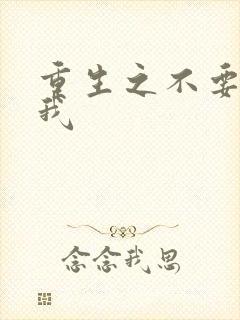 重生之不要
我
念念我思